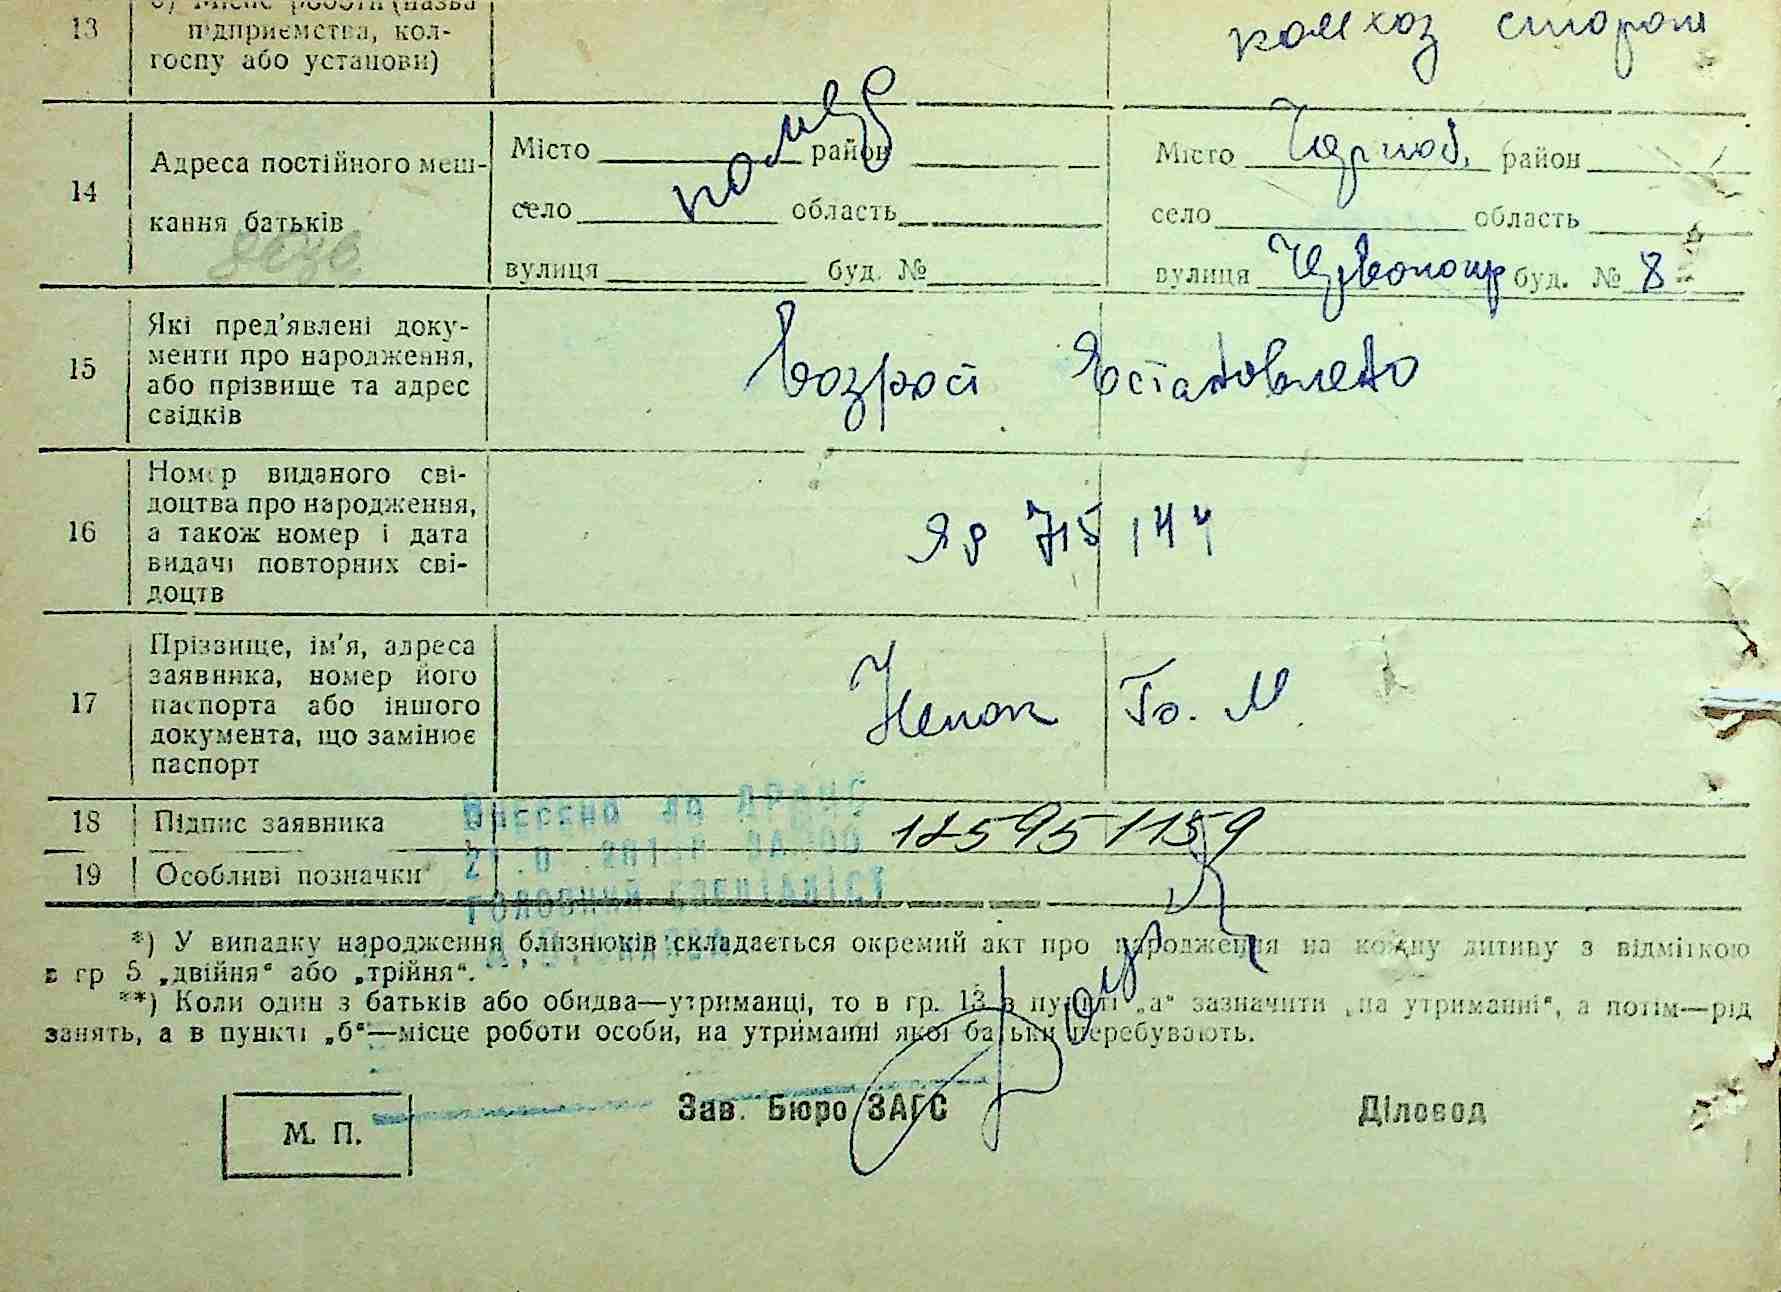 13
б) Місце роботи (назва
підприємства, кол-
госпу або установи)
комхоз сторож
14
Адреса постійного меш-
кання батьків
Місто район
село область
вулиця буд. №
помер
Місто район
село область
вулиця буд. № 8
15
Які пред'явлені доку-
менти про народження,
або прізвище та адрес
свідків
Возраст
16
Номер виданого сві-
доцтва про народження,
а також номер і дата
видачі повторних сві-
доцтв
ЯЯ 715144
17
Прізвище, ім'я, адреса
заявника, номер його
паспорта або іншого
документа, що замінює
паспорт
18
Підпис заявника
Внесено до ДРАЦС
19
Особливі позначки
головний спеціаліст
*) У випадку народження близнюків складається окремий акт про народження на кожну дитину з відміткою
в гр 5 „двійня“ або „трійня“.
**) Коли один з батьків або обидва—утриманці, то в гр. 13 в пункті „а“ зазначити „на утриманні“, а потім—рід
занять, а в пункті „б“—місце роботи особи, на утриманні якої батьки перебувають.
М. П.
Зав. Бюро ЗАГС
Діловод